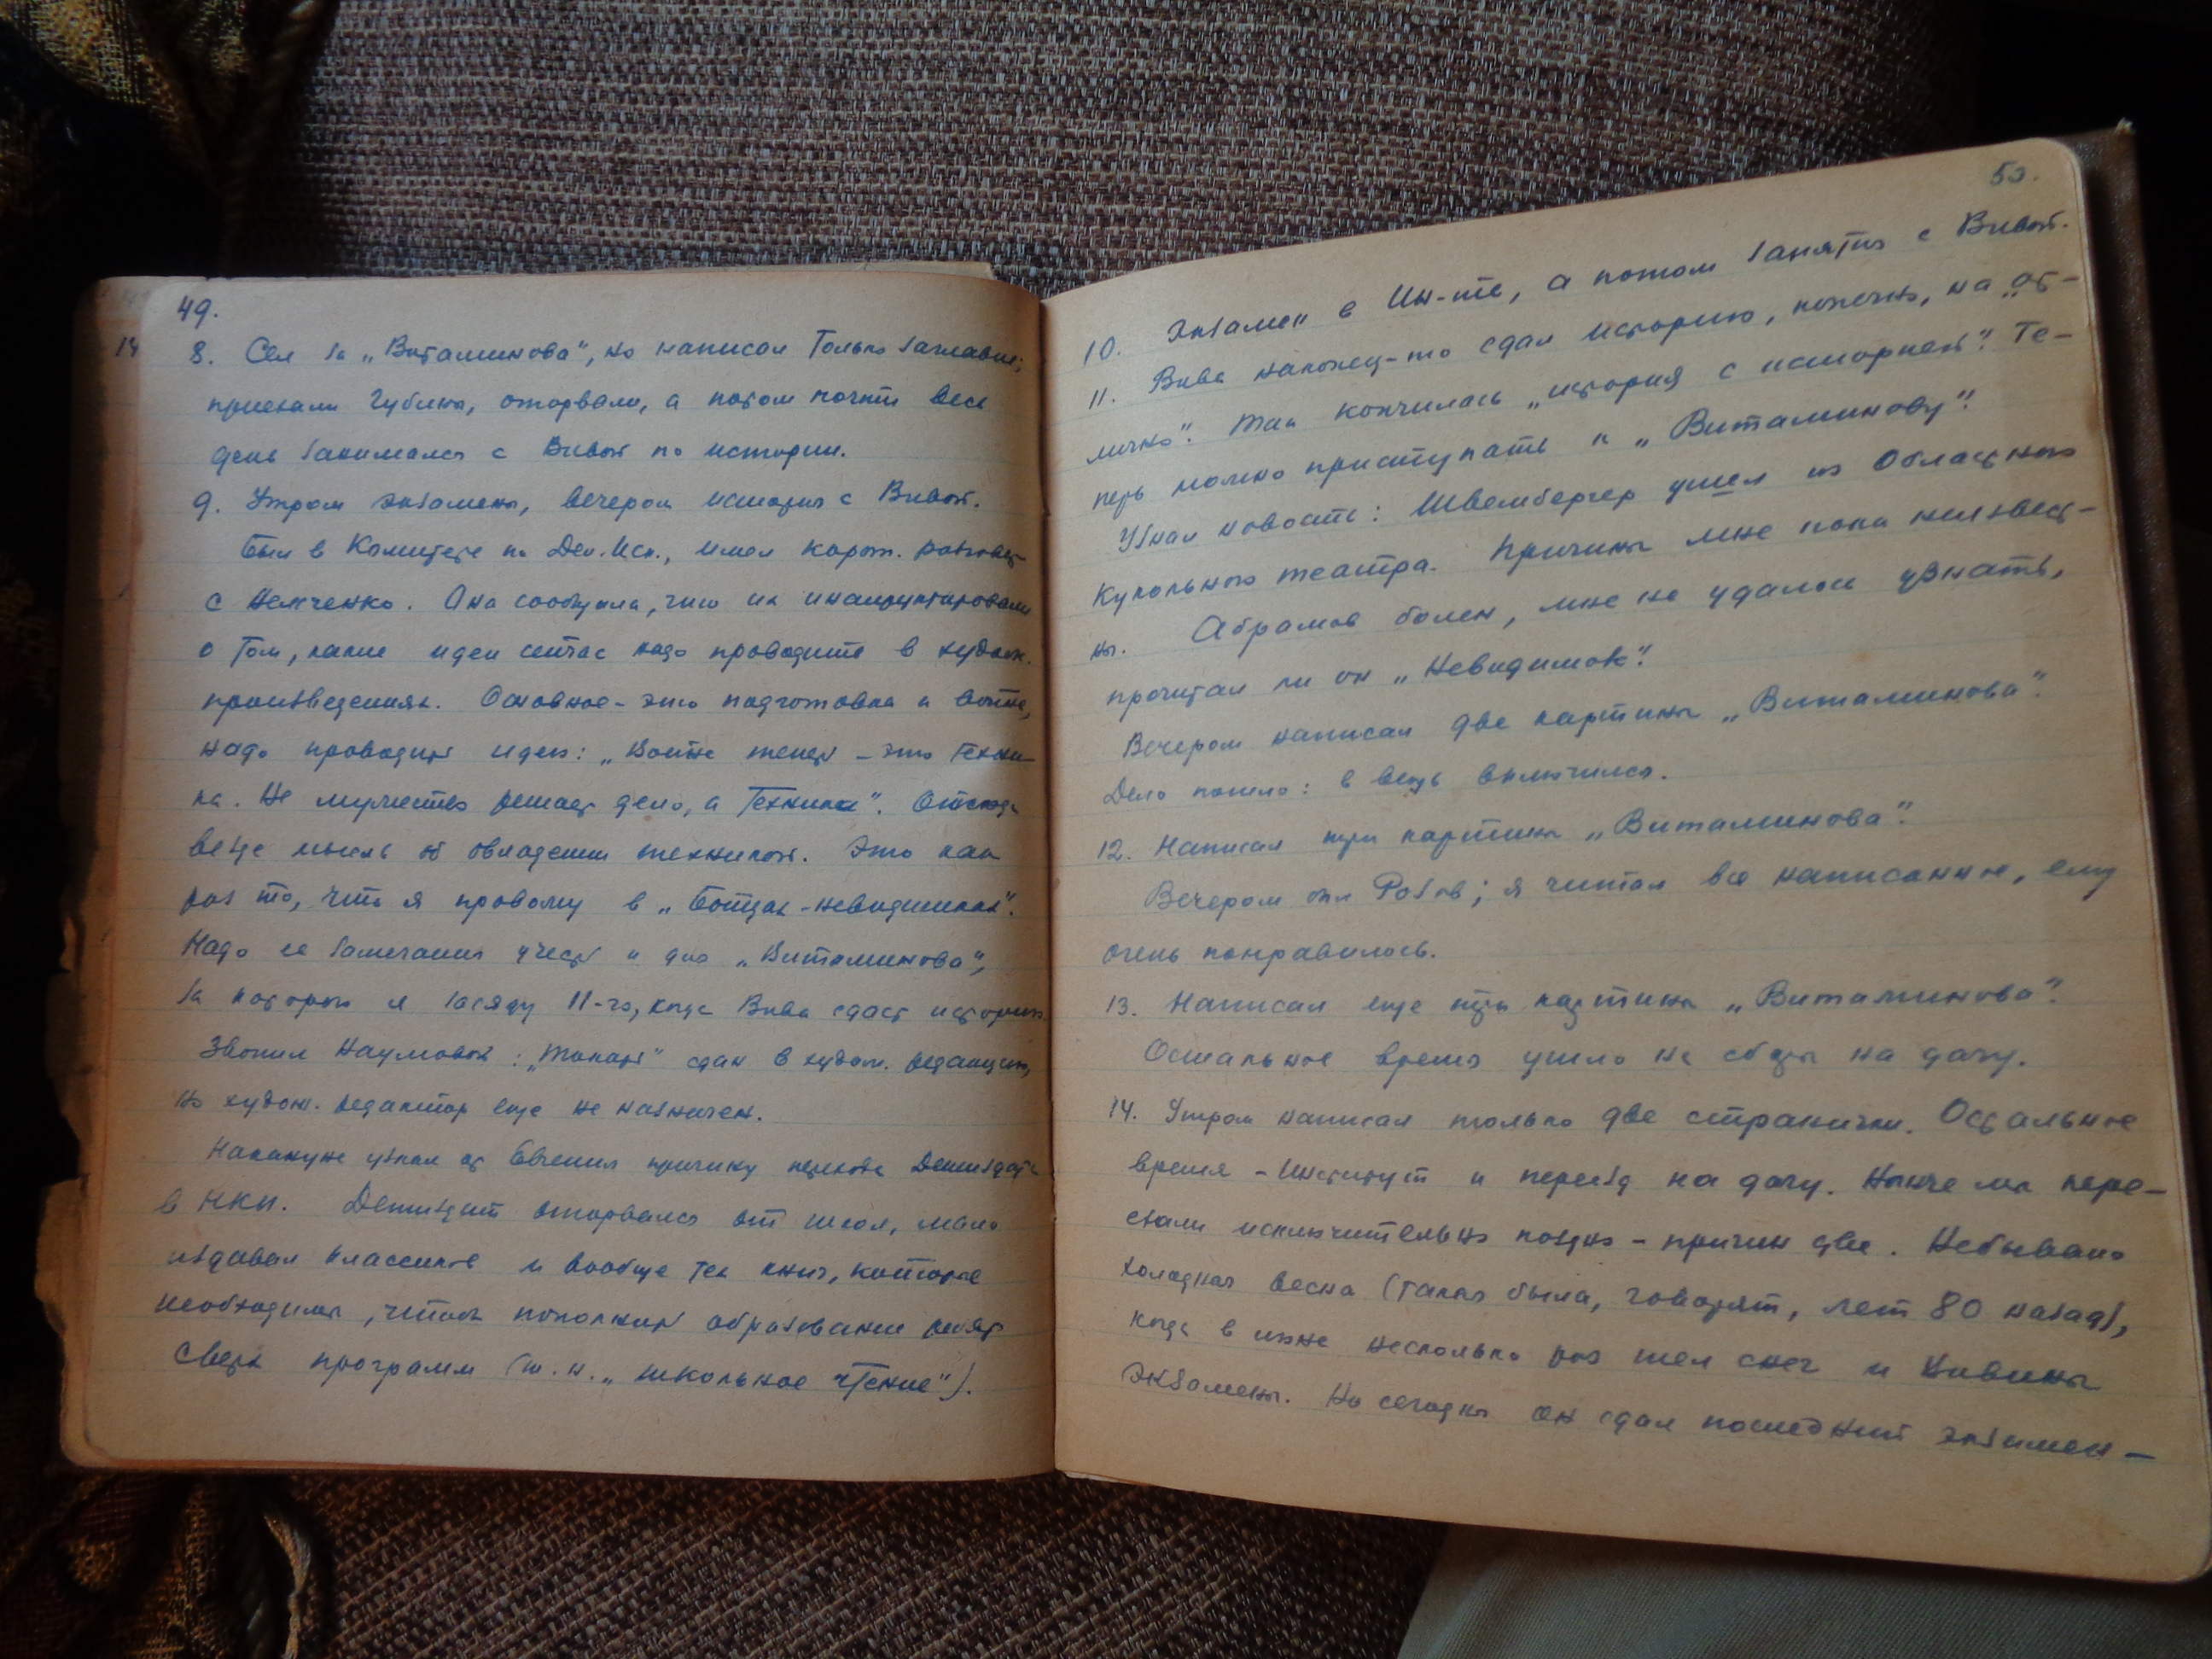 49.
8. Сел за „Витаминова“, но написал только заглавие;
приехали Губины, оторвали, а потом почти весь
день занимался с Вивой по истории.
9. Утром экзамены, вечером история с Вивой.
Был в Комитете по Дел. Иск., имел корот. разговор
с Немченко. Она сообщила, что их инструктировали
о том, какие идеи сейчас надо проводить в худож.
произведениях. Основное - это подготовка к войне,
надо проводить идею: „Война теперь - это техни-
ка. Не мужество решает дело, а техника“. Отсюда
везде мысль об овладении техникой. Это как
раз то, что я провожу в „Бойцах-невидимках“.
Надо ее замечания учесть и для „Витаминова“,
за которого я засяду 11-го, когда Вива сдаст историю.
Звонил Наумовой: „Токарь“ сдан в худож. редакцию,
но худож. редактор еще не назначен.
Накануне узнал от Евгения причину перехода Детиздата
в НКП. Детиздат оторвался от школ, мало
издавал классиков и вообще тех книг, которые
необходимы, чтобы пополнить образование ребят
сверх программ (т. н. „школьное чтение“).
50.
10. Экзамен в Ин-те, а потом занятия с Вивой.
11. Вива наконец-то сдал историю, конечно, на „от-
лично“. Так кончилась „история с историей“. Те-
перь можно приступать к „Витаминову“.
Узнал новость: Швембергер ушел из Областного
Кукольного театра. Причины мне пока неизвест-
ны. Абрамов болен, мне не удалось узнать,
прочитал ли он „Невидимок“.
Вечером написал две картины „Витаминова“.
Дело пошло: в вещь включился.
12. Написал три картины „Витаминова“.
Вечером был Розов; я читал все написанное, ему
очень понравилось.
13. Написал еще три картины „Витаминова“.
Остальное время ушло на сборы на дачу.
14. Утром написал только две странички. Остальное
время - Институт и переезд на дачу. Нынче мы пере-
ехали исключительно поздно - причин две. Небывало
холодная весна (такая была, говорят, лет 80 назад),
когда в июне несколько раз шел снег и Вивины
экзамены. Но сегодня он сдал последний экзамен -